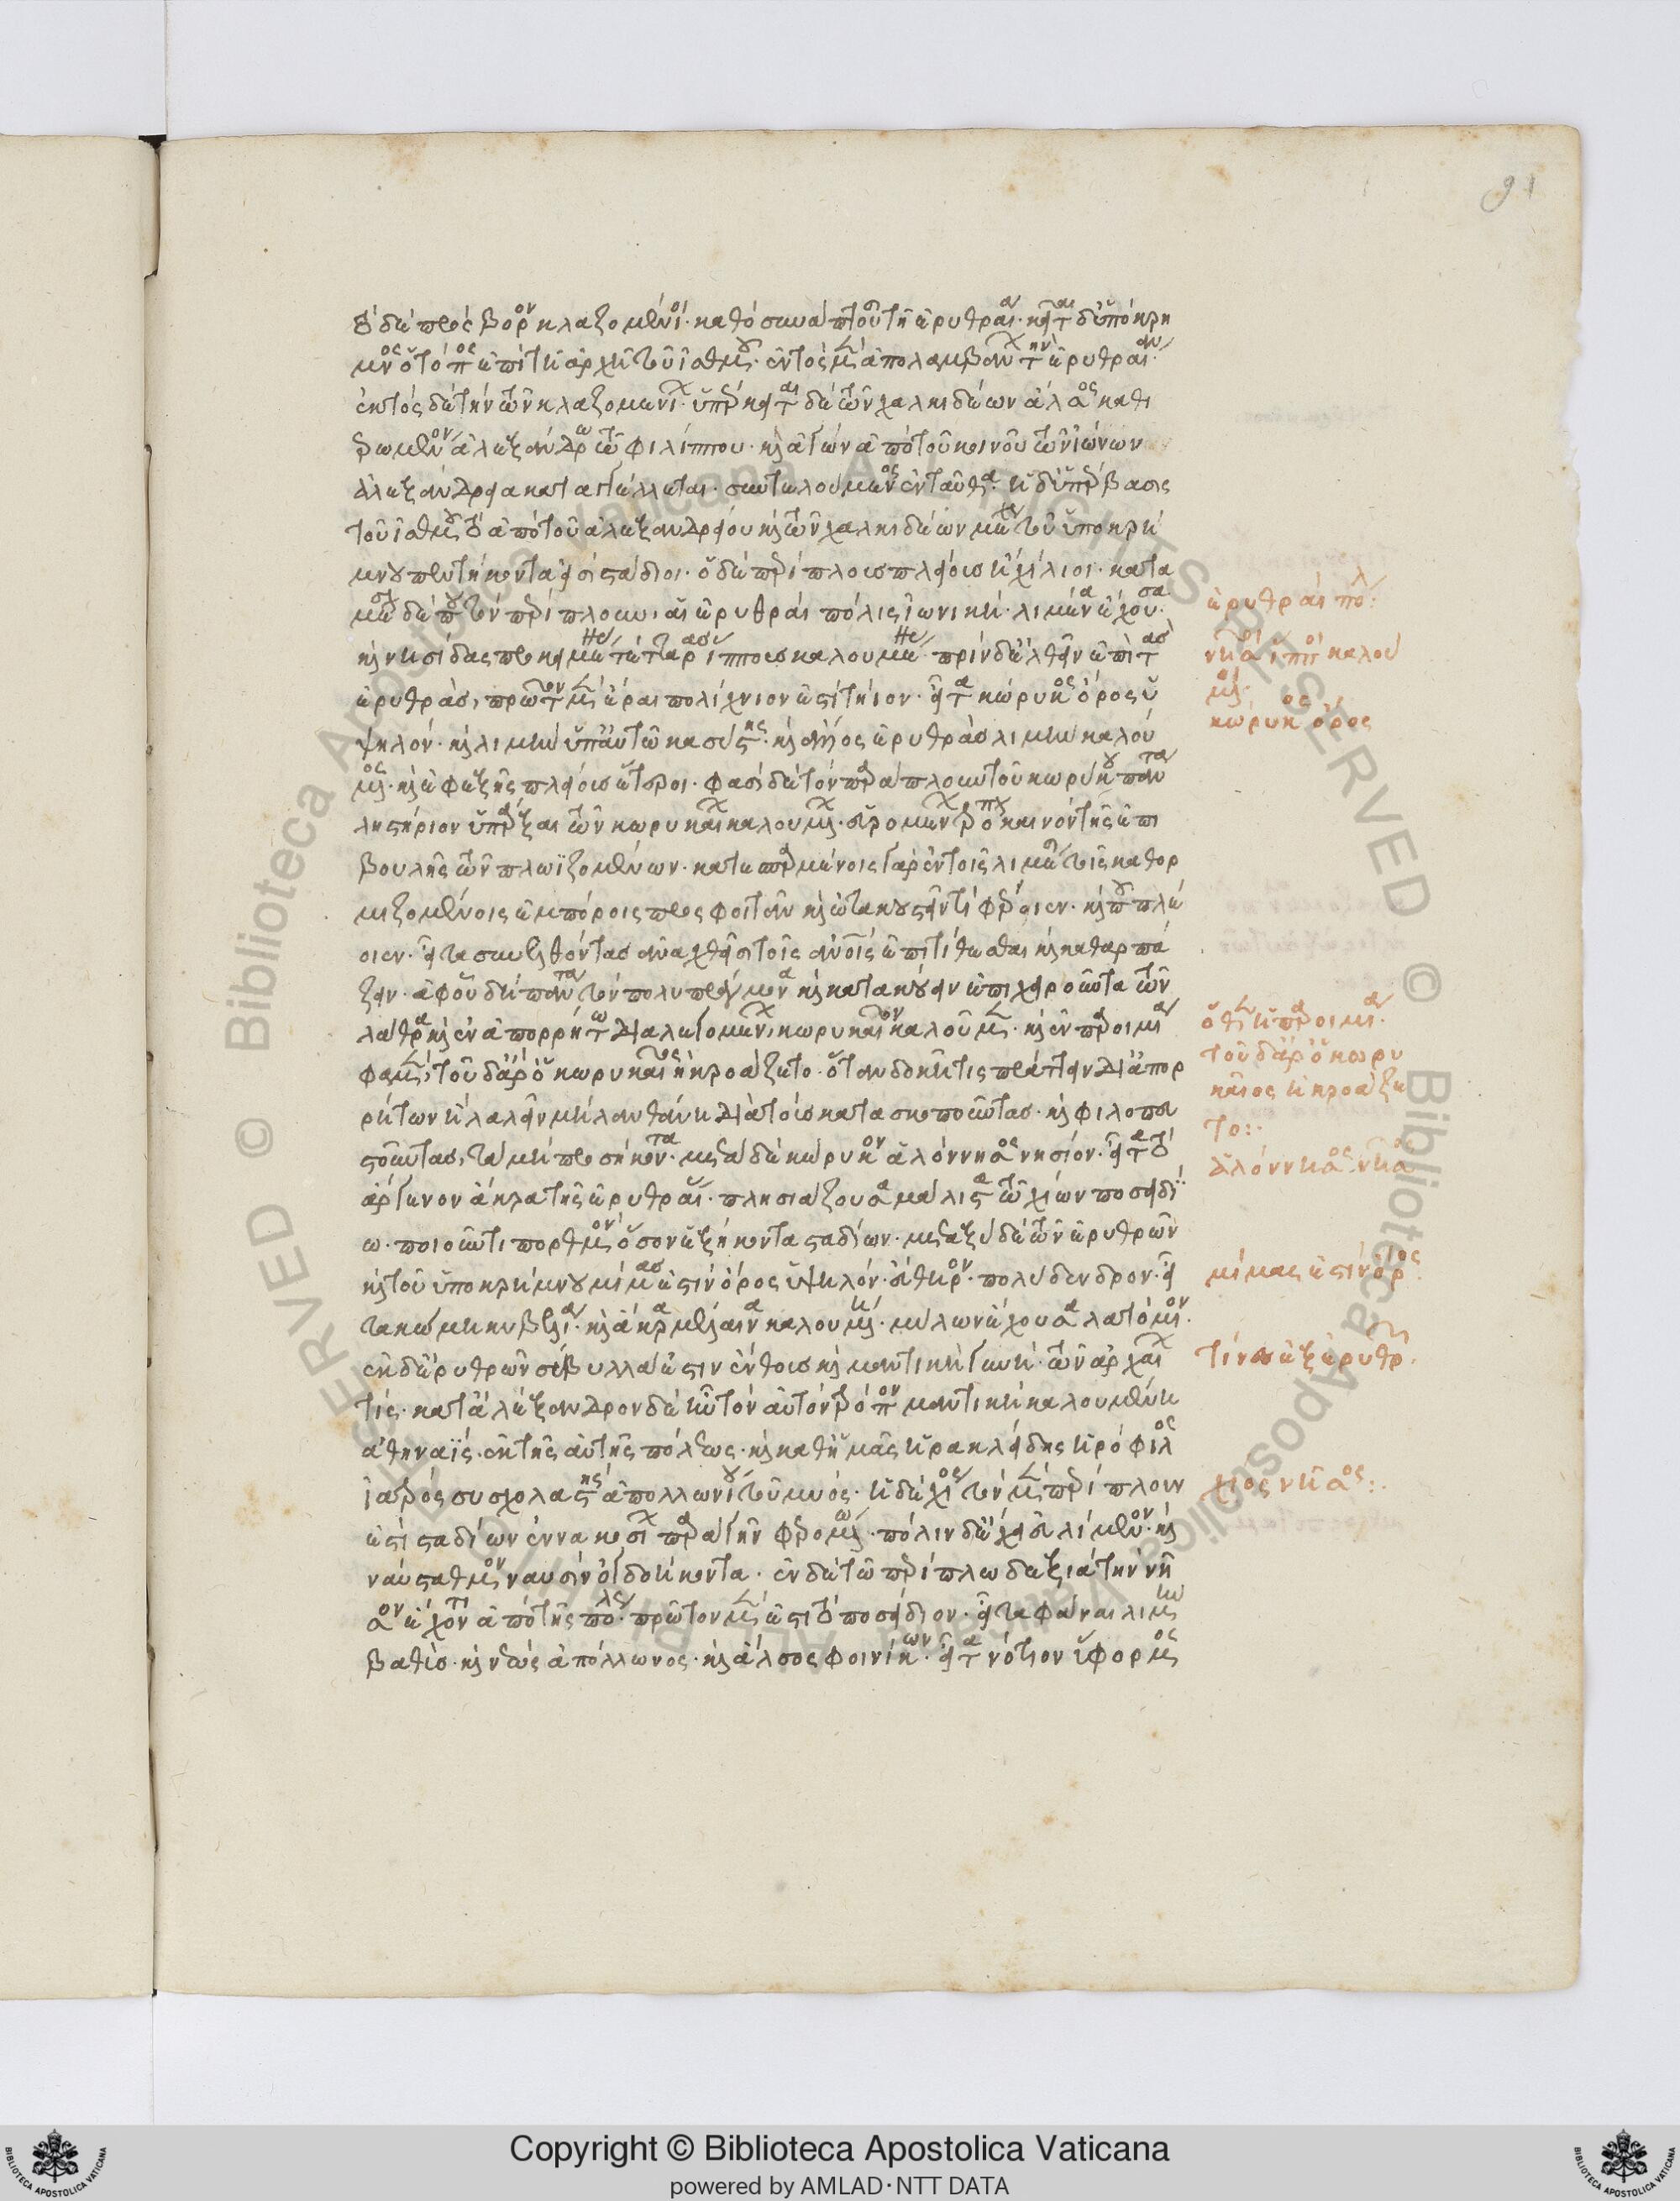 τὸ δὲ πρὸς βορρᾶν κλαζομένιοι· καθὸ συνάπτουσι τῇ ἐρυθραίᾳ· κεῖται δ' ὑπόκρη
μνος ὁ τόπος ἐπὶ τῇ ἀρχῇ τοῦ ἰσθμοῦ· ἐντὸς μὲν ἀπολαμβάνων τὴν ἐρυθραίαν·
ἐκτὸς δὲ τὴν τῶν κλαζομενίων· ὑπέρκειται δὲ τῶν χαλκιδέων ἄλσος καθι
ερωμένον ἀλεξάνδρω τῶ φιλίππου· καὶ ἀγὼν ἀπὸ τοῦ κοινοῦ τῶν ἰώνων
ἀλεξάνδρεια καταγγέλλεται· συντελούμενος ἐνταῦθα· ἡ δ' ὑπέρβασις
τοῦ ἰσθμοῦ τοῦ ἀπὸ τοῦ ἀλεξανδρείου καὶ τῶν χαλκιδέων μέχρι τοῦ ὑποκρή
μνου πεντήκοντα εἰσὶ στάδιοι· ὁ δὲ περίπλους πλείους ἢ χίλιοι· κατὰ
μέσον δέ που τὸν περίπλουν, αἱ ἐρυθραὶ πόλις ἰωνικὴ· λιμένα ἔχουσα·
καὶ νησίδας προκειμένας τέτταρας ἵππους καλουμένας· πρὶν δ' ἐλθεῖν ἐπὶ τὰς
ἐρυθράς, πρῶτον μὲν ἔραι πολίχνιον ἐστὶ τήιον· εἶτα κώρυκος ὄρος ὑ
ψηλόν· καὶ λιμὴν ὑπ' αὐτῶ κασύστης· καὶ ἄλλος ἐρυθρὰς λιμὴν καλού
μενος· καὶ ἐφεξῆς πλείους ἕτεροι· φασὶ δὲ τὸν παράπλουν τοῦ κωρύκου πάντα
ληστήριον ὑπάρξαι τῶν κωρυκαίων καλουμένων· εὑρομένων τρόπον καινὸν τῆς ἐπι
βουλῆς τῶν πλωϊζομένων· κατεσπαρμένους γὰρ ἐν τοῖς λιμέσι τοῖς καθορ
μιζομένοις ἐμπόροις προσφοιτᾶν καὶ ὠτακουστεῖν τί φέροιεν· καὶ ποῦ πλέ
οιεν· εἶτα συνελθόντας ἀναχθεῖσι τοῖς ἀνθρώποις ἐπιτίθεσθαι καὶ καθαρπά
ζειν· ἀφ' οὗ δὴ πάντα τὸν πολυπράγμονα καὶ κατακούειν ἐπιχειροῦντα τῶν
λάθρα καὶ ἐν ἀπορρήτω διαλεγομένων, κωρυκαῖον καλοῦμεν· καὶ ἐν παροιμία
φαμέν, τοῦ δ' ἄρ' ὁ κωρυκαῖος ἠκροάζετο· ὅταν δοκῇ τις πράττειν δι' ἀπορ
ρήτων ἢ λαλεῖν μὴ λανθάνη διὰ τοὺς κατασκοποῦντας· καὶ φιλοπευ
στοῦντας, τὰ μὴ προσήκοντα· μετὰ δὲ κώρυκον ἁλόννησος νησίον· εἶτα τὸ
ἄργεννον ἄκρα τῆς ἐρυθραίας· πλησιάζουσα μάλιστα τῶ χίων ποσειδί
ω· ποιοῦντι πορθμὸν ὅσον ἑξήκοντα σταδίων· μεταξὺ δὲ τῶν ἐρυθρῶν
καὶ τοῦ ὑποκρήμνου μίμας ἐστὶν ὄρος ὑψηλόν· εὔθηρον· πολύδενδρον· εἶ
τα κώμη κυβελία· καὶ ἄκρα μέλαινα καλουμένη· μύλων ἔχουσα λατόμιον·
ἐκ δ' ἐρυθρῶν σίβυλλά ἐστιν ἔνθους καὶ μαντικὴ γυνὴ· τῶν ἀρχαίων
τίς· κατ' ἀλέξανδρον δὲ ἦν τὸν αὐτὸν τρόπον μαντικὴ καλουμένη
ἀθηναῒς· ἐκ τῆς αὐτῆς πόλεως· καὶ καθ' ἡμᾶς ἡρακλείδης ἡροφίλειος
ἰατρός συσχολαστὴς ἀπολλωνίου τοῦ μυός· ἡ δὲ χίος τὸν μὲν περίπλουν
ἐστὶ σταδίων ἐννακοσίων παρὰ γῆν φερομένω· πόλιν δ' ἔχει εὐλίμενον· καὶ
ναύσταθμον ναυσὶν ὀγδοήκοντα· ἐν δὲ τῶ περίπλω δεξιὰ τὴν νῆ
σον ἔχοντι ἀπὸ τῆς πόλεως· πρῶτον μὲν ἐστὶ τὸ ποσείδιον· εἶτα φάναι λιμὴν
βαθύς· καὶ νεὼς ἀπόλλωνος· καὶ ἄλσος φοινίκων· εἶτα νότιον ὕφορμος
ἐρυθραὶ πόλ:
νῆσοι ἵπποι καλού
μεναι·
κώρυκος ὄρος
ὅθεν ἡ παροιμία·
τοῦ δ' ἄρ' ὁ κωρυ
καῖος ἠκροάζε
το:·
ἁλόννησος νῆσος
μίμας ἐστὶν ὄρος·
τίνες ἐξ ἐρυθρῶν·
χίος νῆσος:·
91
Copyright © Biblioteca Apostolica Vaticana
powered by AMLAD·NTT DATA